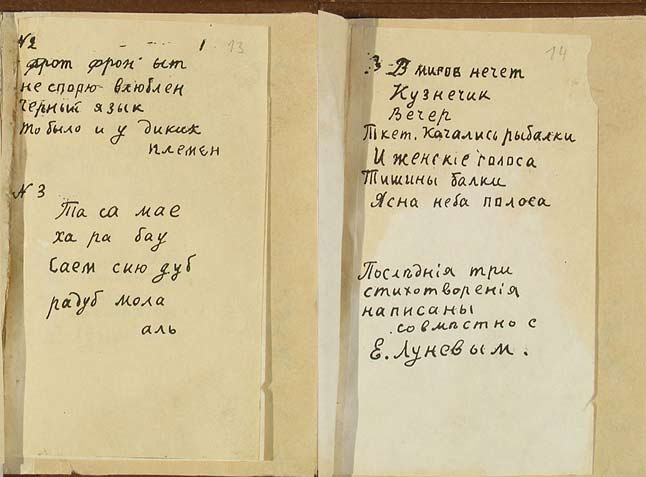 №2
13
фрот фрон ыт
не спорю влюблен
черный язык
то было и у диких
племен
№3
Та са мае
ха ра бау
Саем сию дуб
радуб мола
аль
14
3 В миров нечет
Кузнечик
Вечер
Ткет. Качались рыбалки
И женскіе голоса
Тишины балки
Ясна неба полоса
Послѣднія три
стихотворенія
написаны
совмѣстно с
Е. Луневым.